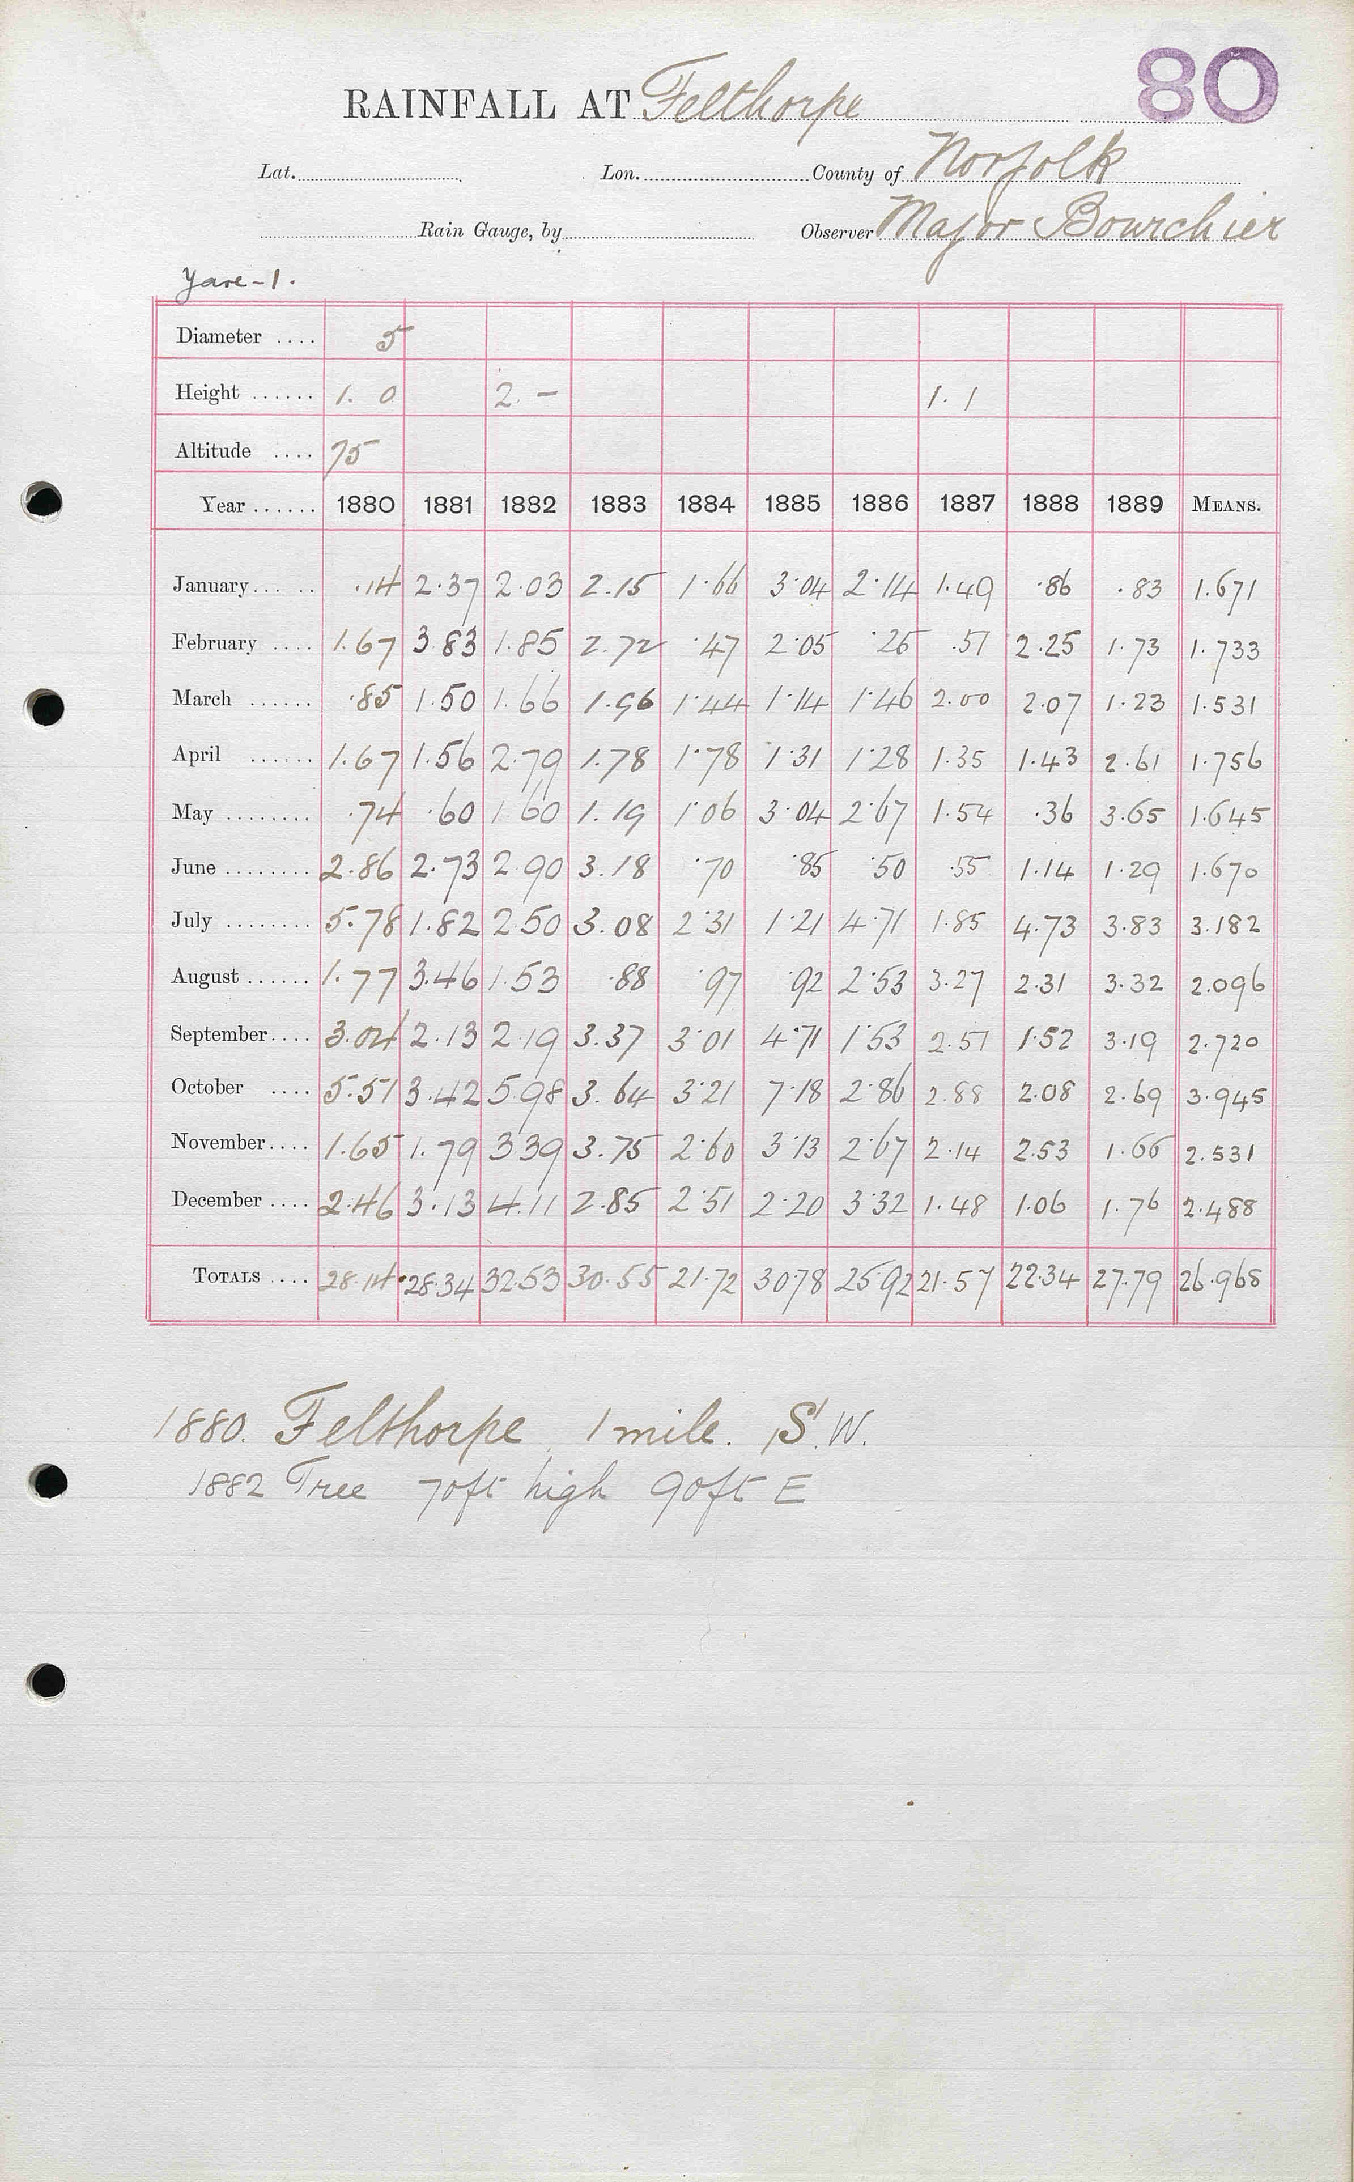 80
RAINFALL AT Felthorpe
Lat. Lon. County of Norfolk
Rain Gauge, by Observer Major Bourchier
Yare-1.
Diameter .... 5
Height ...... 1. 0 2. - 1. 1
Altitude .... 75
Year ...... 1880 1881 1882 1883 1884 1885 1886 1887 1888 1889 MEANS.
January ...... .14 2.37 2.03 2.15 1.66 3.04 2.14 1.49 .86 .83 1.671
February .... 1.67 3.83 1.85 2.72 .47 2.05 .26 .51 2.25 1.73 1.733
March ...... .85 1.50 1.66 1.96 1.44 1.14 1.46 2.00 2.07 1.23 1.531
April ...... 1.67 1.56 2.79 1.78 1.78 1.31 1.28 1.35 1.43 2.61 1.756
May ........ .74 .60 1.60 1.19 1.06 3.04 2.67 1.54 .36 3.65 1.645
June ........ 2.86 2.73 2.90 3.18 .70 .85 .50 .55 1.14 1.29 1.670
July ........ 5.78 1.82 2.50 3.08 2.31 1.21 4.71 1.85 4.73 3.83 3.182
August ...... 1.77 3.46 1.53 .88 .97 .92 2.53 3.27 2.31 3.32 2.096
September.... 3.04 2.13 2.19 3.37 3.01 4.71 1.53 2.51 1.52 3.19 2.720
October .... 5.51 3.42 5.98 3.64 3.21 7.18 2.86 2.88 2.08 2.69 3.945
November.... 1.65 1.79 3 39 3.75 2.60 3.13 2.67 2.14 2.53 1.66 2.531
December .... 2.46 3.13 4.11 2.85 2.51 2.20 3.32 1.48 1.06 1.76 2.488
TOTALS .... 28.14 28.34 32.53 30.55 21.72 30.78 25.92 21.57 22.34 27.79 26.968
1880. Felthorpe 1 mile. S.W.
1882 Tree 70ft high 90ft E